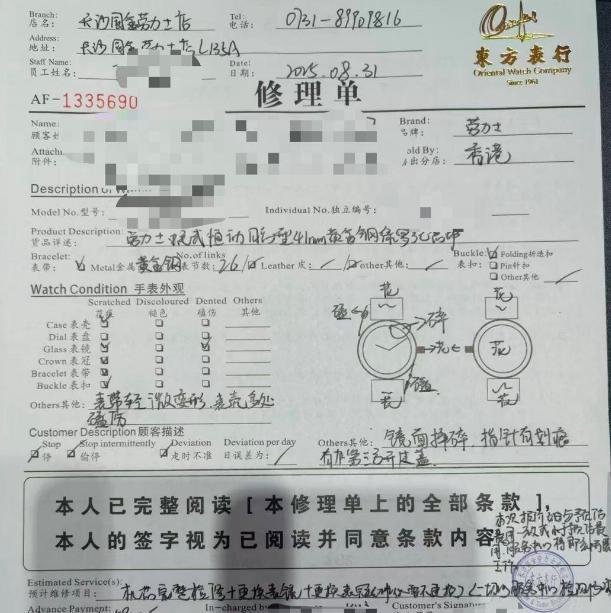 Branch: 店名: 长沙国金劳力士店 Tel: 电话: 0731-89909816
Address: 地址: 长沙国金劳力士店L133A
Staff Name: 员工姓名: Date: 日期: 2025.08.31
東方表行
Oriental Watch Company
Since 1961
AF-1335690 修理单
Name: 顾客 Brand: 品牌: 劳力士
Attach 附件: Sold By: 售出分店: 香港
Description of W
Model No. 型号: Individual No. 独立编号:
Product Description: 货品详述: 劳力士 恒动 型41mm黄金钢
Bracelet: 表带: Metal金属 黄金钢 No.of links 表节数: 26 Leather 皮: other其他:
Buckle: 表扣: Folding折迭扣
Pin针扣
Other其他
Watch Condition 手表外观
Scratched 花痕 Discoloured 褪色 Dented 磕伤 Others 其他
Case 表壳
Dial 表盘
Glass 表镜
Crown 表冠
Bracelet 表带
Buckle 表扣
花 花
磕 碎
花 花
磕
花 花
Others其他: 表带轻微变形, 表壳多处磕伤
Customer Description 顾客描述
Stop 停 Stop intermittently 偷停 Deviation 走时不准 Deviation per day 日误差为:
Others其他: 镜面摔碎 指针有划痕
有在第三方开过盖
本人已完整阅读［本修理单上的全部条款］,
本人的签字视为已阅读并同意条款内容
Estimated Service(s): 预计维修项目: 机芯完整检修+更换表镜+更换表冠
Advance Payment: In-charged by Customer's Signature